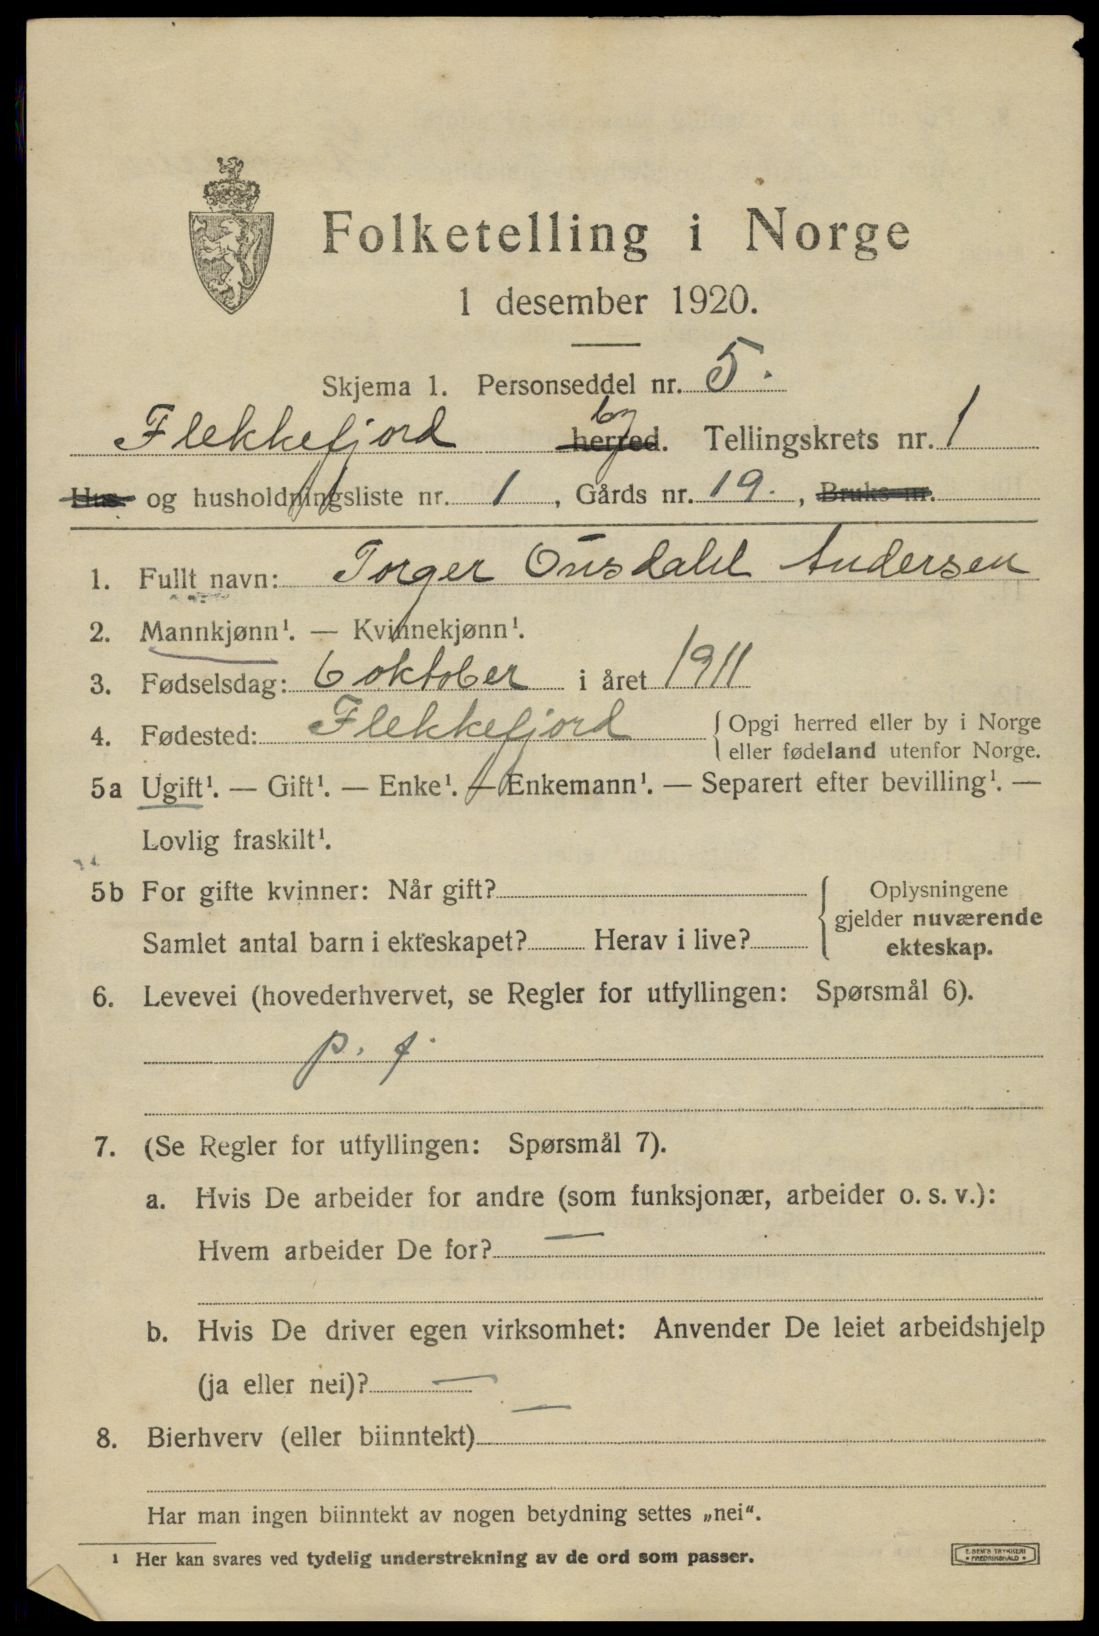 Folketelling i Norge
1 desember 1920.
Skjema 1. Personseddel nr. 5.
Flekkefjord herred. by Tellingskrets nr. 1
Hus- og husholdningsliste nr. 1, Gårds nr. 19., Bruks-nr.
1. Fullt navn: Torger Ousdahl Andersen
2. Mannkjønn¹. — Kvinnekjønn¹.
3. Fødselsdag: 6 oktober i året 1911
4. Fødested: Flekkefjord { Opgi herred eller by i Norge
eller fødeland utenfor Norge.
5a Ugift¹. — Gift¹. — Enke¹. — Enkemann¹. — Separert efter bevilling¹. —
Lovlig fraskilt¹.
5b For gifte kvinner: Når gift? { Oplysningene
gjelder nuværende
Samlet antal barn i ekteskapet? Herav i live? ekteskap.
6. Levevei (hovederhvervet, se Regler for utfyllingen: Spørsmål 6).
p. f.
7. (Se Regler for utfyllingen: Spørsmål 7).
a. Hvis De arbeider for andre (som funksjonær, arbeider o. s. v.):
Hvem arbeider De for? —
b. Hvis De driver egen virksomhet: Anvender De leiet arbeidshjelp
(ja eller nei)? —
8. Bierhverv (eller biinntekt) —
Har man ingen biinntekt av nogen betydning settes „nei“.
¹ Her kan svares ved tydelig understrekning av de ord som passer.
E. SEM'S TRYKKERI
• FREDRIKSHALD •